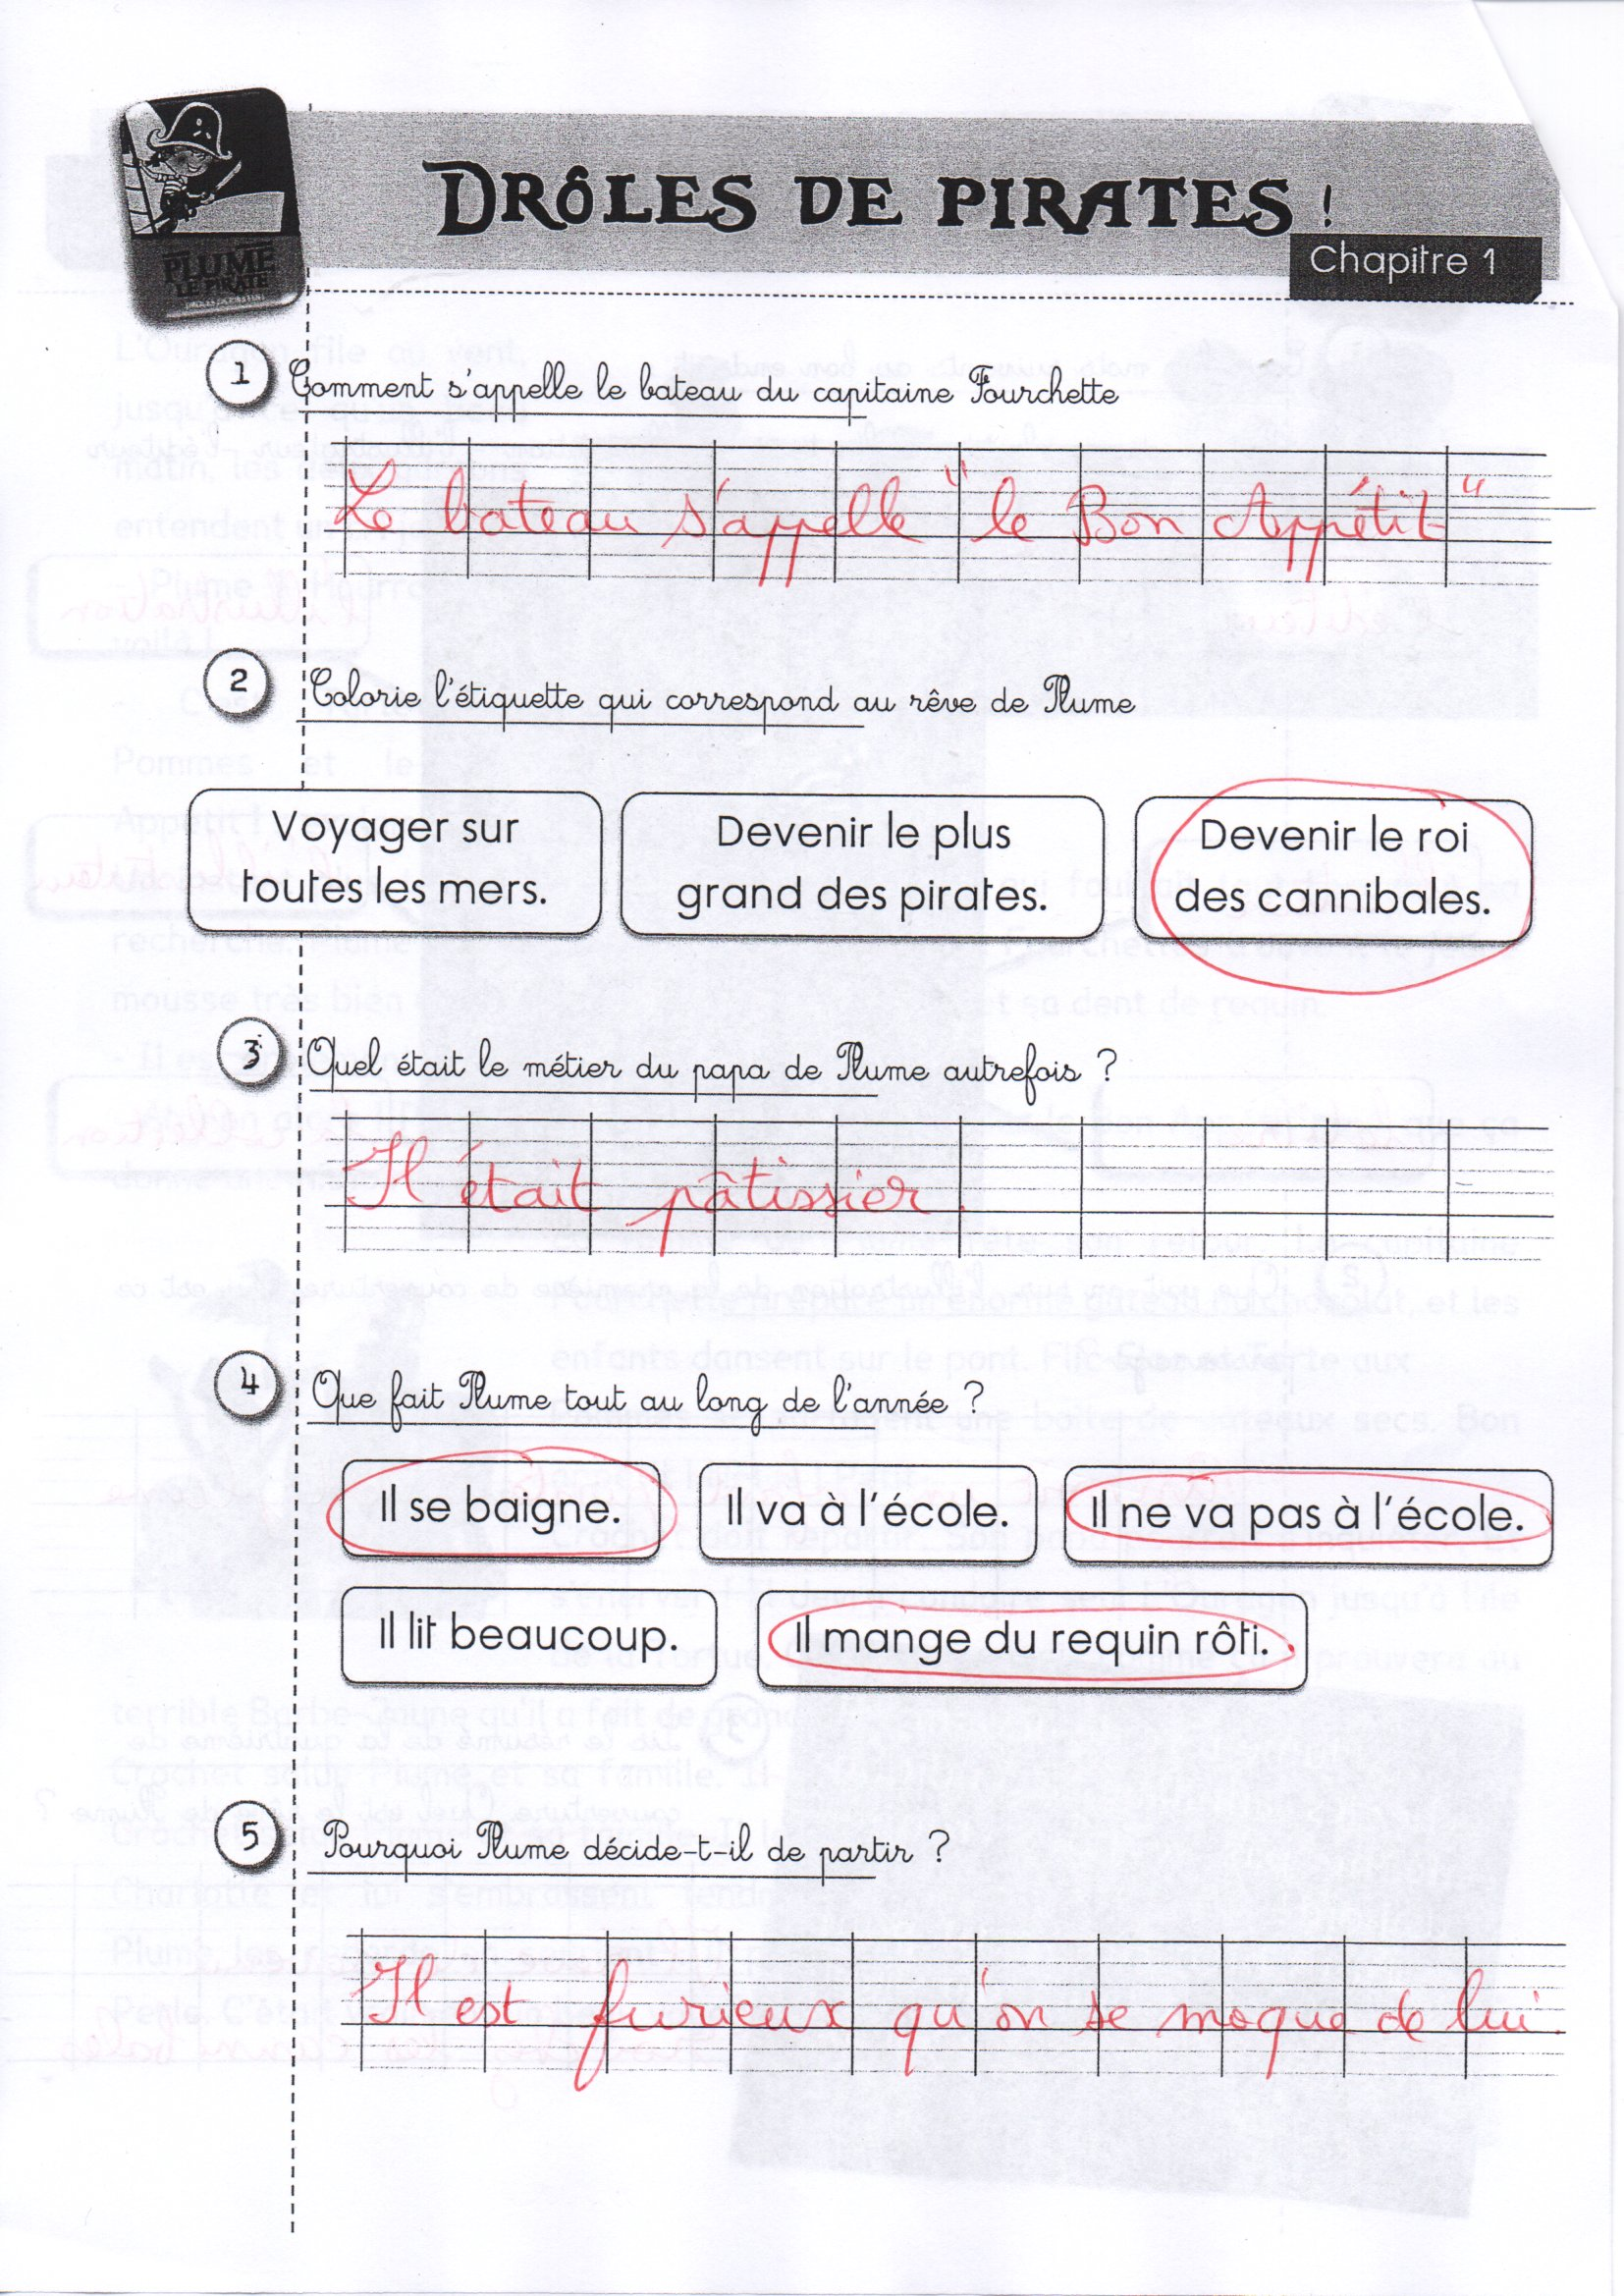 PLUME
LE PIRATE
DRÔLES DE PIRATES !
Chapitre 1
1 Comment s'appelle le bateau du capitaine Fourchette
Le bateau s'appelle "le Bon Appétit"
2 Colorie l'étiquette qui correspond au rêve de Plume
Voyager sur
toutes les mers.
Devenir le plus
grand des pirates.
Devenir le roi
des cannibales.
3 Quel était le métier du papa de Plume autrefois ?
Il était pâtissier.
4 Que fait Plume tout au long de l'année ?
Il se baigne. Il va à l'école. Il ne va pas à l'école.
Il lit beaucoup. Il mange du requin rôti.
5 Pourquoi Plume décide-t-il de partir ?
Il est furieux qu'on se moque de lui.